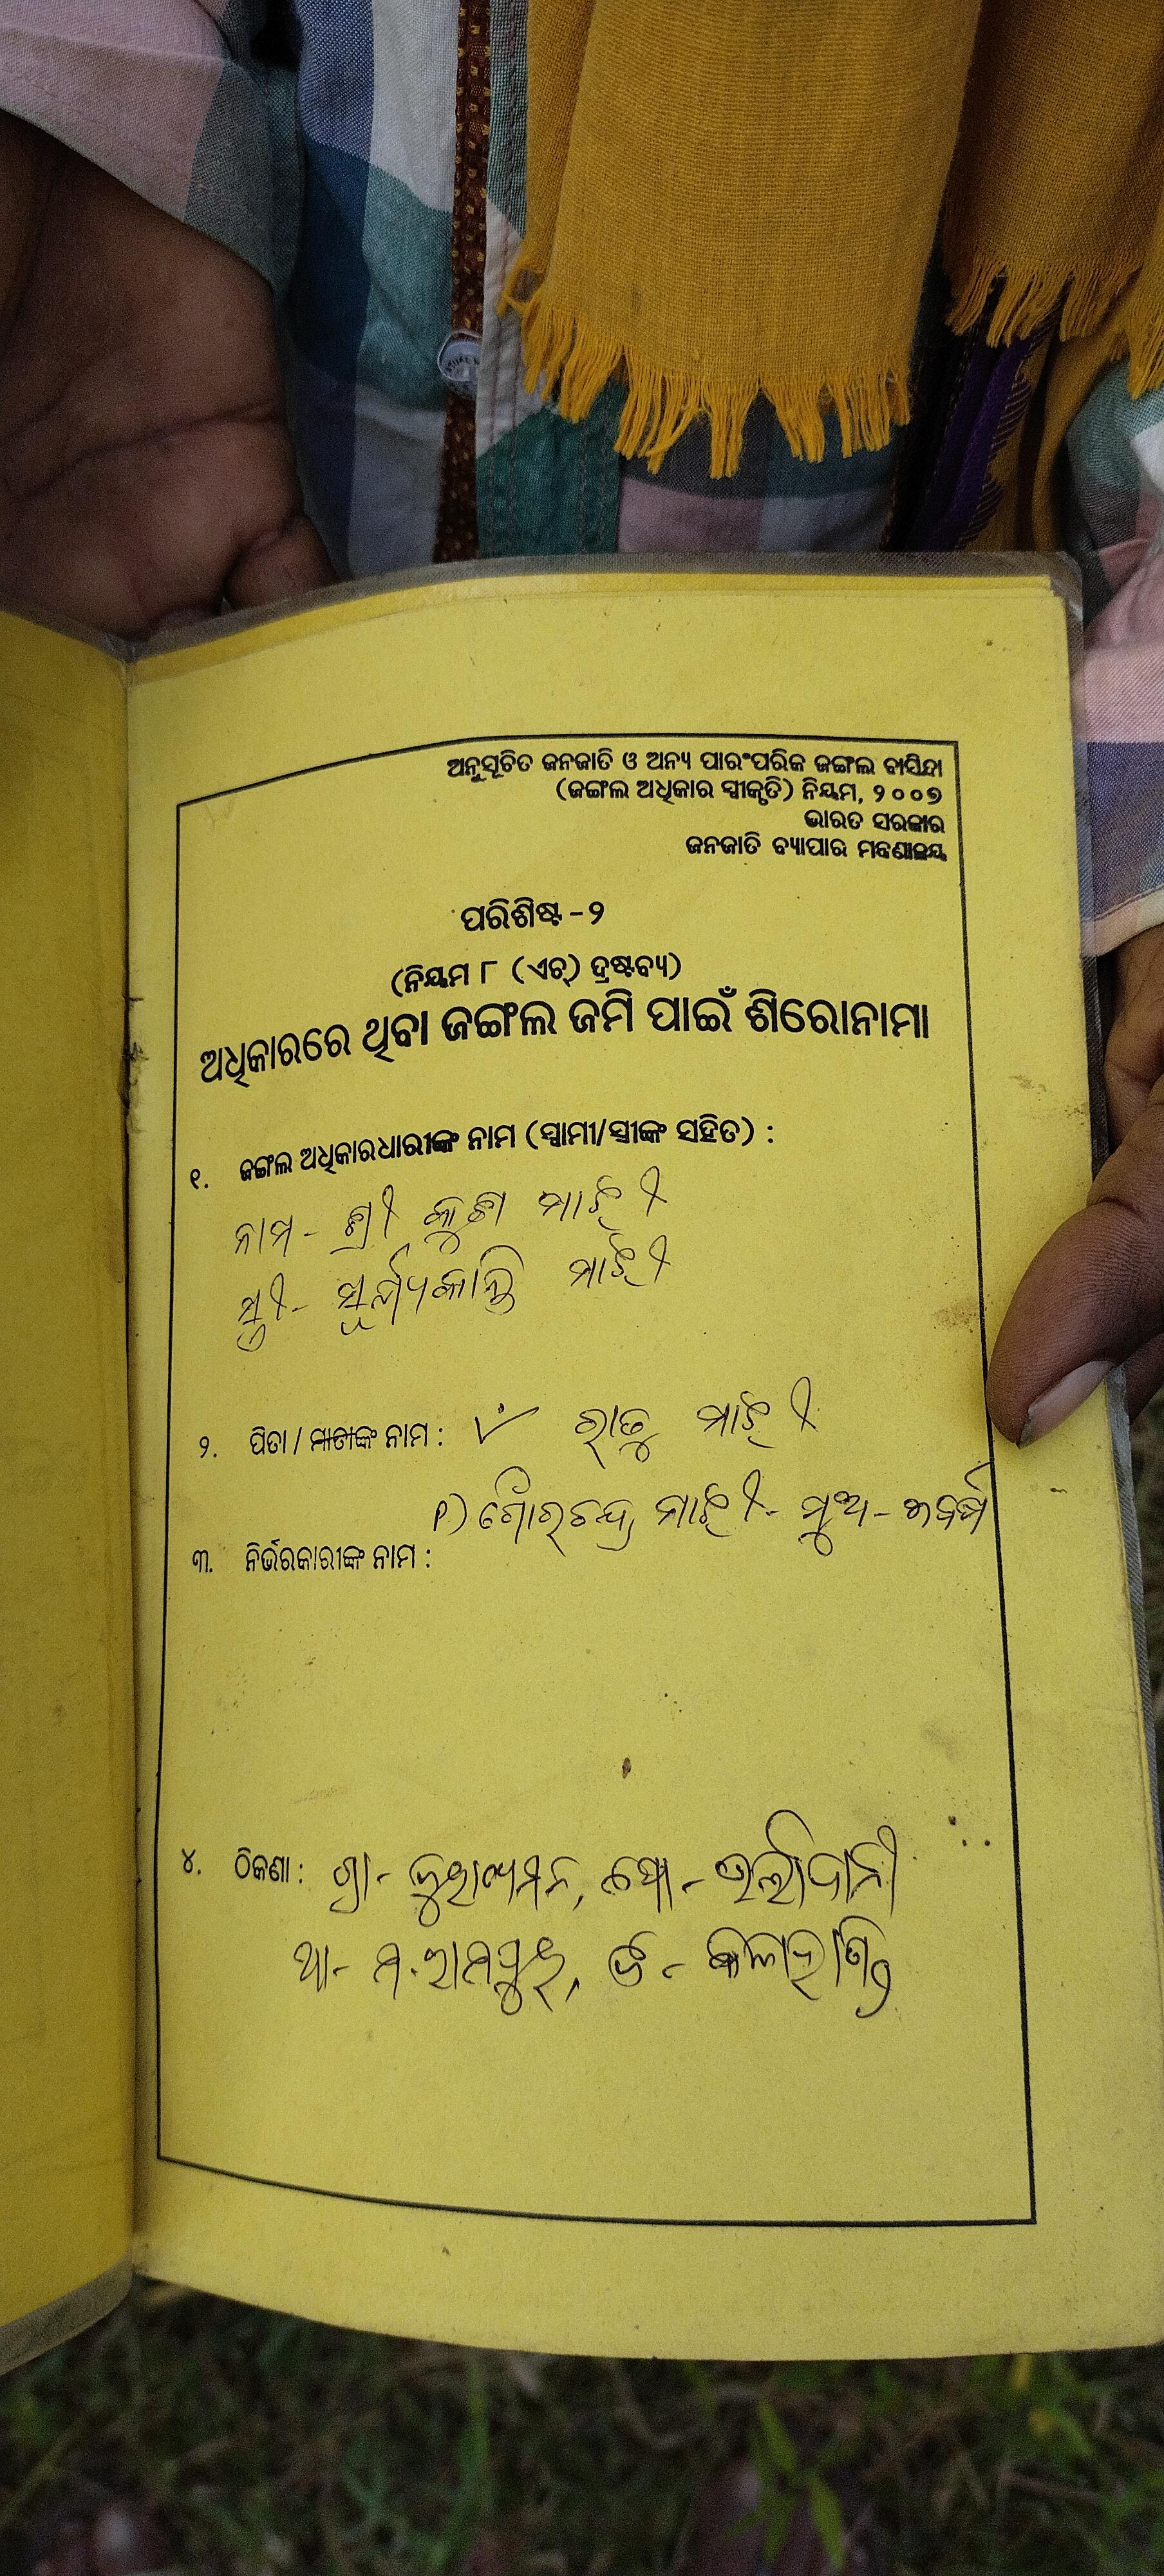 ଅନୁସୂଚିତ ଜନଜାତି ଓ ଅନ୍ୟ ପାରଂପରିକ ଜଙ୍ଗଲ ବାସିନ୍ଦା
(ଜଙ୍ଗଲ ଅଧିକାର ସ୍ୱୀକୃତି) ନିୟମ, ୨୦୦୭
ଭାରତ ସରକାର
ଜନଜାତି ବ୍ୟାପାର ମନ୍ତ୍ରଣାଳୟ
ପରିଶିଷ୍ଟ-୨
(ନିୟମ ୮ (ଏଚ୍) ଦ୍ରଷ୍ଟବ୍ୟ)
ଅଧିକାରରେ ଥିବା ଜଙ୍ଗଲ ଜମି ପାଇଁ ଶିରୋନାମା
୧. ଜଙ୍ଗଲ ଅଧିକାରଧାରୀଙ୍କ ନାମ (ସ୍ୱାମୀ/ସ୍ତ୍ରୀଙ୍କ ସହିତ) :
ନାମ- ଶ୍ରୀ ମାଝି
ସ୍ତ୍ରୀ- ସୂର୍ଯ୍ୟକାନ୍ତି ମାଝି
୨. ପିତା / ମାତାଙ୍କ ନାମ : ମାଝି
୧) ଗୌରଚନ୍ଦ୍ର ମାଝି - ପୁଅ -
୩. ନିର୍ଭରକାରୀଙ୍କ ନାମ :
୪. ଠିକଣା : ଗ୍ରା- ପୋ-
ଥା- ମ.ରାମପୁର, ଜି- କଳାହାଣ୍ଡି